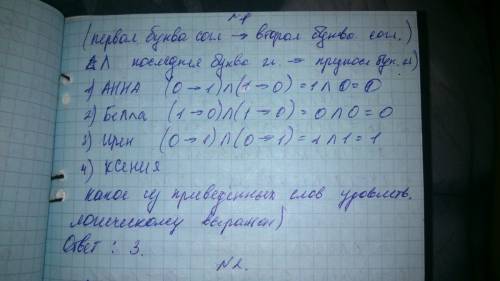 №1
(первая буква согл → вторая буква согл.)
Λ последняя буква гл. → предпосл. бук. гл)
1) АННА (0→1)Λ(1→0) = 1Λ0=0
2) Белла (1→0)Λ(1→0) = 0Λ0=0
3) Ирен (0→1)Λ(0→1) = 1Λ1=1
4) Ксения
Какое из приведенных слов удовлетв.
логическому выражен)
Ответ : 3.
№2.